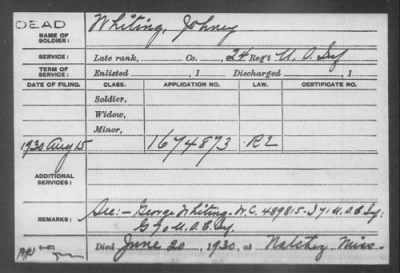 DEAD
NAME OF SOLDIER: Whiting, Johney
SERVICE: Late rank, Co. , 24 Reg't U. S. Inf
TERM OF SERVICE: Enlisted , 1 Discharged , 1
DATE OF FILING. CLASS. APPLICATION NO. LAW. CERTIFICATE NO.
Soldier,
Widow,
Minor,
1930 Aug 15 1674873 R2
ADDITIONAL SERVICES:
REMARKS: See:- George Whiting W.C. 489815-I 71 U.S.C. Inf;
G 70 U.S.C. Inf.
Died June 20, 1930, at Natchez, Miss-